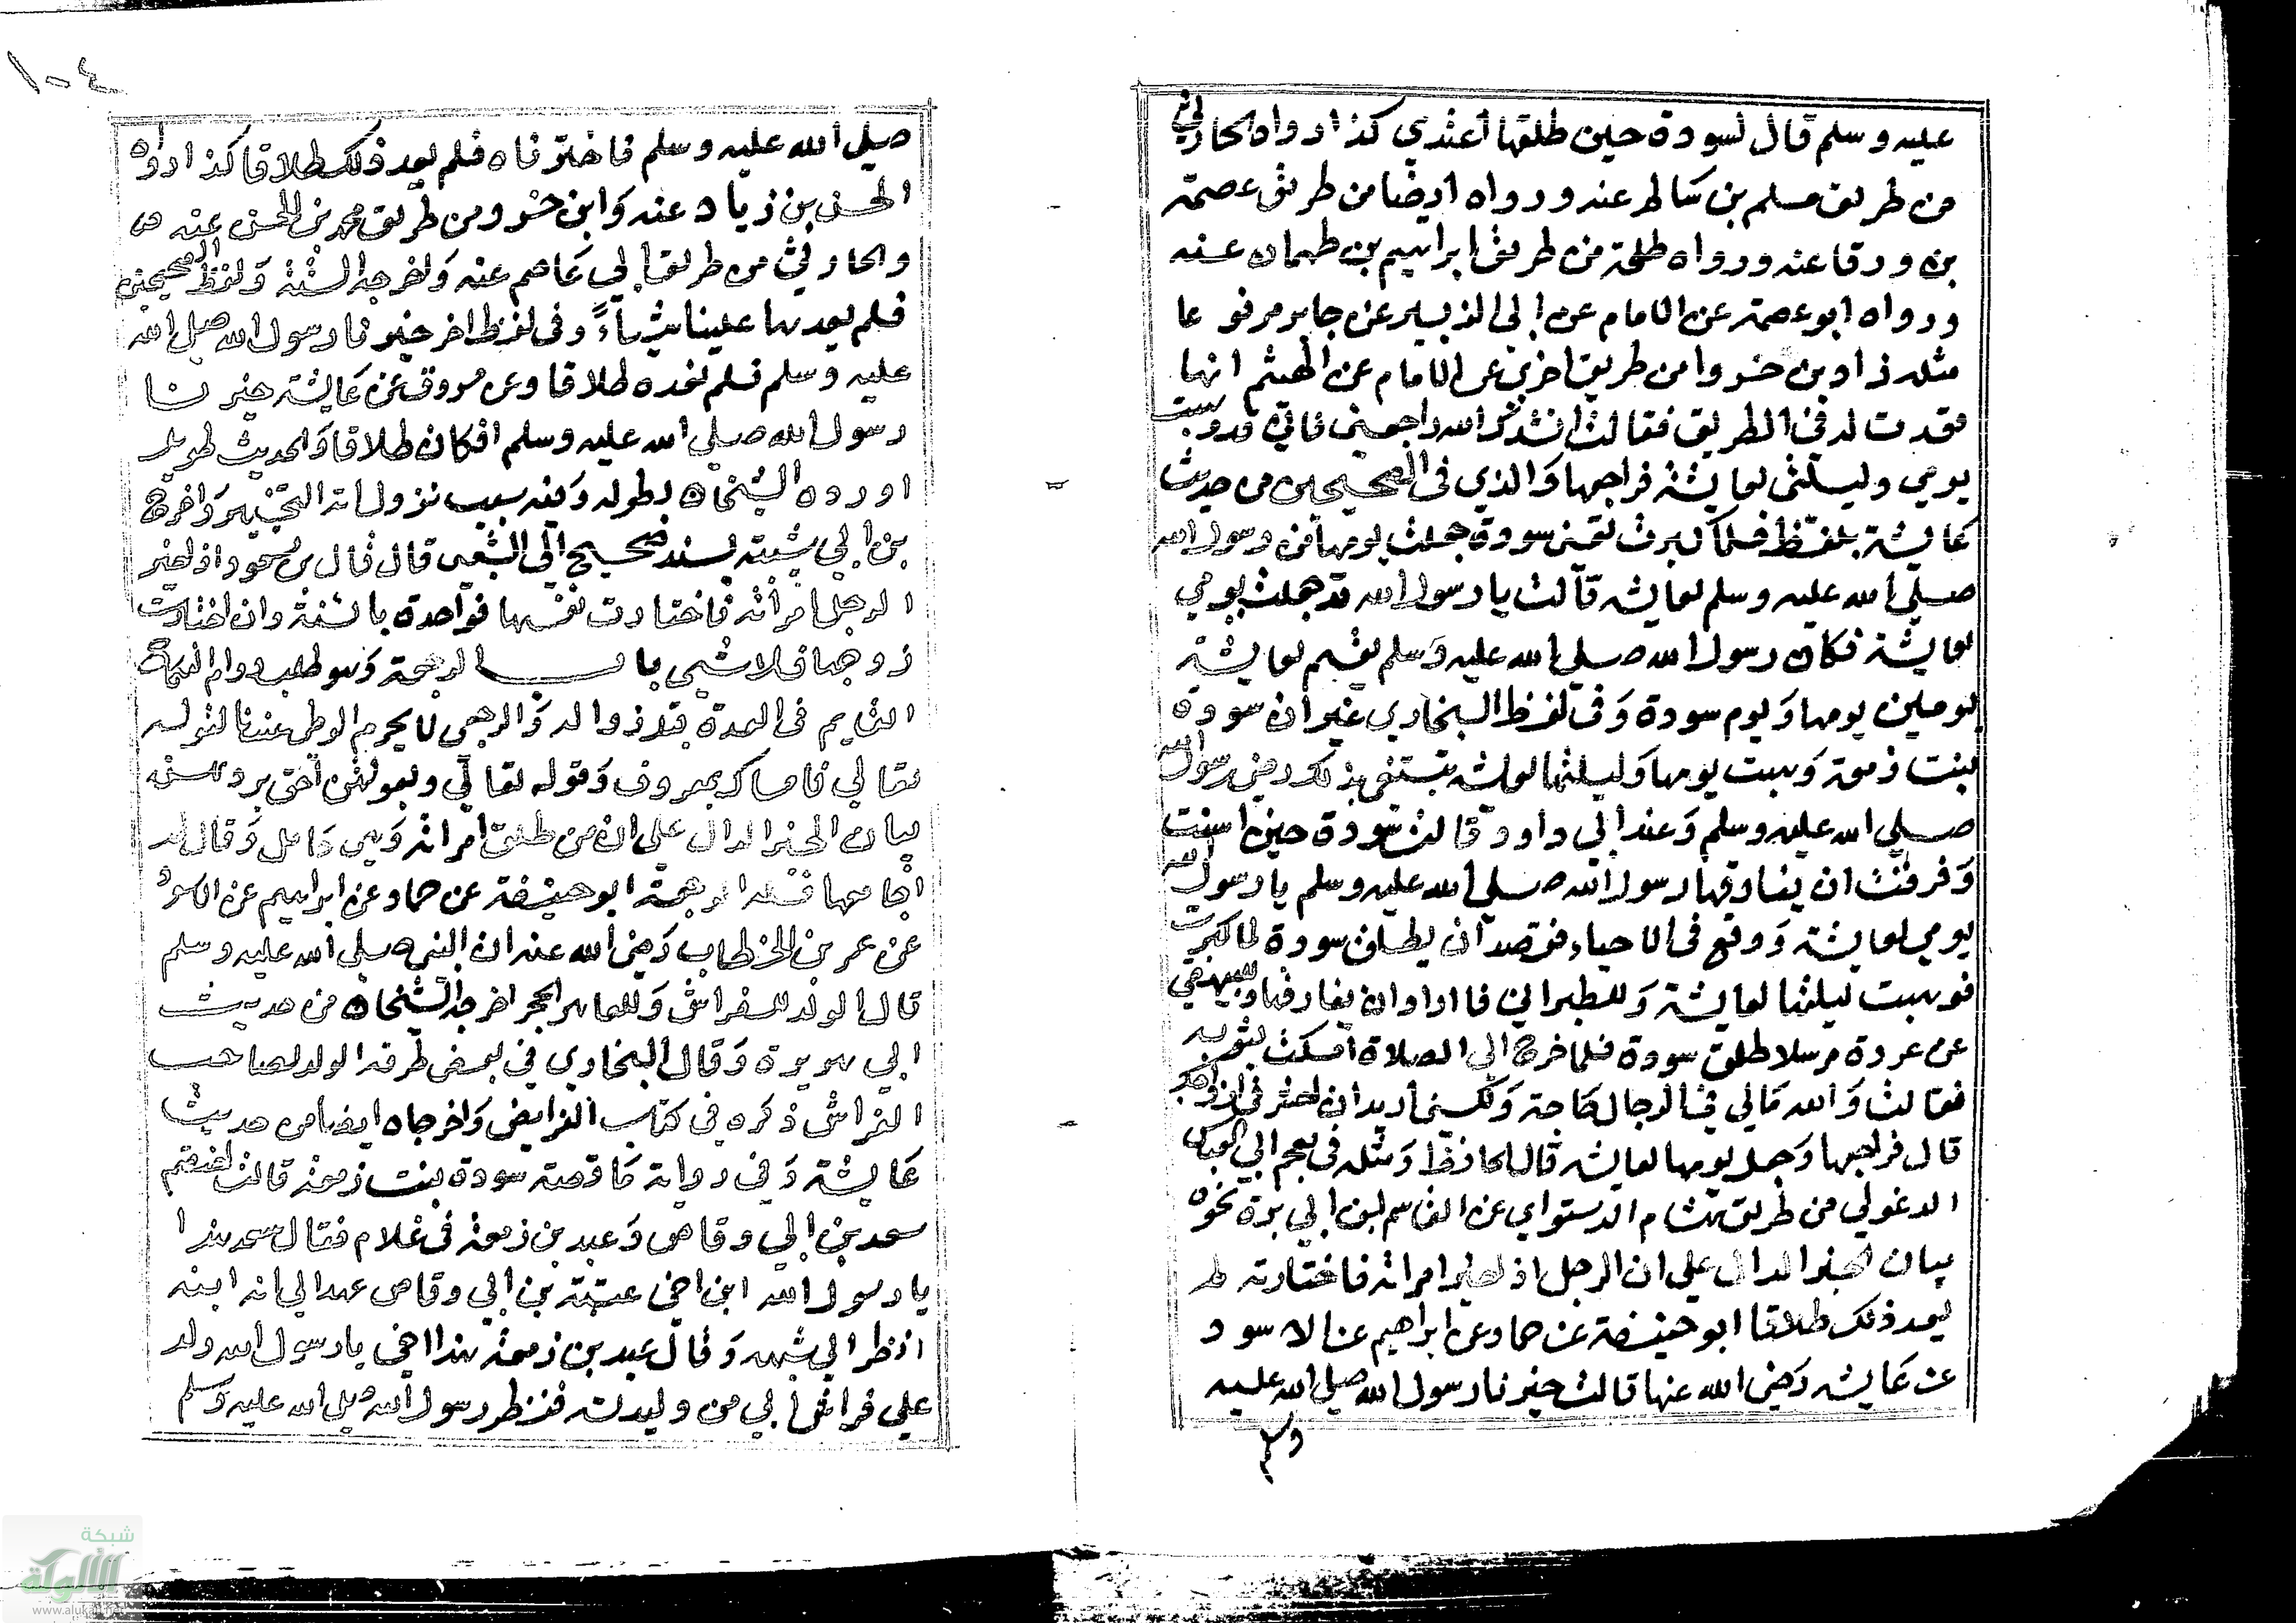 عليه وسلم قال لسودة حين طلقها اعتدي كذا رواه الحارثي
من طريق مسلم بن سالم عنه ورواه ايضا من طريق عصمة
بن ورقا عنه ورواه طلحة من طريق ابراهيم بن طهمان عنه
ورواه ابو عصمة عن الامام عن ابي الزبير عن جابر مرفوعا
مثله زاد بن خسروا من طريق اخري عن الامام عن الهيثم انها
فقدت له في الطريق فقالت انشدك الله راجعني فاني قد وهبت
يومي وليلتي لعايشة فراجعها والذي في الصحيحين من حديث
عايشة بلفظ فلما كبرت تعني سودة جعلت يومها من رسول الله
صلي الله عليه وسلم لعايشه قالت يا رسول الله قد جعلت يومي
لعايشة فكان رسول الله صلي الله عليه وسلم يقسم لعايشة
يومين يومها ويوم سودة وفي لفظ البخاري غير ان سودة
بنت زمعة وهبت يومها وليلتها لعايشه تبتغي بذلك رضي رسول الله
صلي الله عليه وسلم وعند ابي داود قالت سودة حين اسنت
وفرقت ان يفارقها رسول الله صلي الله عليه وسلم يا رسول الله
يومي لعايشة ووقع في الاحياء فقصد ان يطلق سودة لما كبرت
فوهبت ليلتها لعايشة وللطبراني فااراد ان يفارقها وللبيهقي
عن عروة مرسلا طلق سودة فلما خرج الي الصلاة امسكت بثوبه
فقالت والله مالي في الرجال حاجة ولكني اريد ان احشر في ازواجك
قال فراجعها وجعل يومها لعايشه قال الحافظ ومثله في معجم ابي العباس
الدغولي من طريق هشام الدستواي عن القاسم بن ابي بزة نحوه
بيان الخبر الدال علي ان الرجل اذا خير امراته فاختارته لم
يعد ذلك طلاقا ابو حنيفة عن حماد عن ابراهيم عن الاسود
عن عايشه رضي الله عنها قالت خيرنا رسول الله صلي الله عليه
وسلم
١٠٤
صلي الله عليه وسلم فاخترناه فلم يعد ذلك طلاقا كذا رواه
الحسن بن زياد عنه وابن خسرو من طريق محمد بن الحسن عنه
والحارثي من طريق ابي عاصم عنه واخرجه الستة ولفظ الصحيحين
فلم يعدها علينا شياء وفي لفظ اخر خيرنا رسول الله صلي الله
عليه وسلم فلم نعده طلاقا وعن مسروق عن عايشة خيرنا
رسول الله صلي الله عليه وسلم افكان طلاقا والحديث طويل
اورده الشيخان بطوله وفيه سبب نزول اية التخيير واخرج
بن ابي شيبة بسند صحيح الي الشعبي قال قال بن مسعود اذا خير
الرجل امراته فاختارت نفسها فواحدة بائنة وان اختارت
زوجها فلا شيي باب الرجعة وهو طلب دوام النكاح
القايم في العدة قبل زواله والرجعي لا يحرم الوطي عندنا لقوله
تعالي فامساك بمعروف وقوله تعالي وبعولتهن احق بردهن
بيان الخبر الدال علي ان من طلق امراته وهي حامل وقال لم
اجامعها فله الرجعة ابو حنيفة عن حماد عن ابراهيم عن الاسود
عن عمر بن الخطاب رضي الله عنه ان النبي صلي الله عليه وسلم
قال الولد للفراش وللعاهر الحجر اخرجه الشيخان من حديث
ابي هريرة وقال البخاري في بعض طرقه الولد لصاحب
الفراش ذكره في كتاب الفرايض واخرجاه ايضا من حديث
عايشة وفي رواية ما قصة سودة بنت زمعة قالت اختصم
سعد بن ابي وقاص وعبد بن زمعة في غلام فقال سعد هذا
يا رسول الله ابن اخي عتبة بن ابي وقاص عهد الي انه ابنه
انظر الي شبهه وقال عبد بن زمعة هذا اخي يا رسول الله ولد
علي فراش ابي من وليدته فنظر رسول الله صلي الله عليه وسلم
شبكة
الألوكة
www.alukah.net